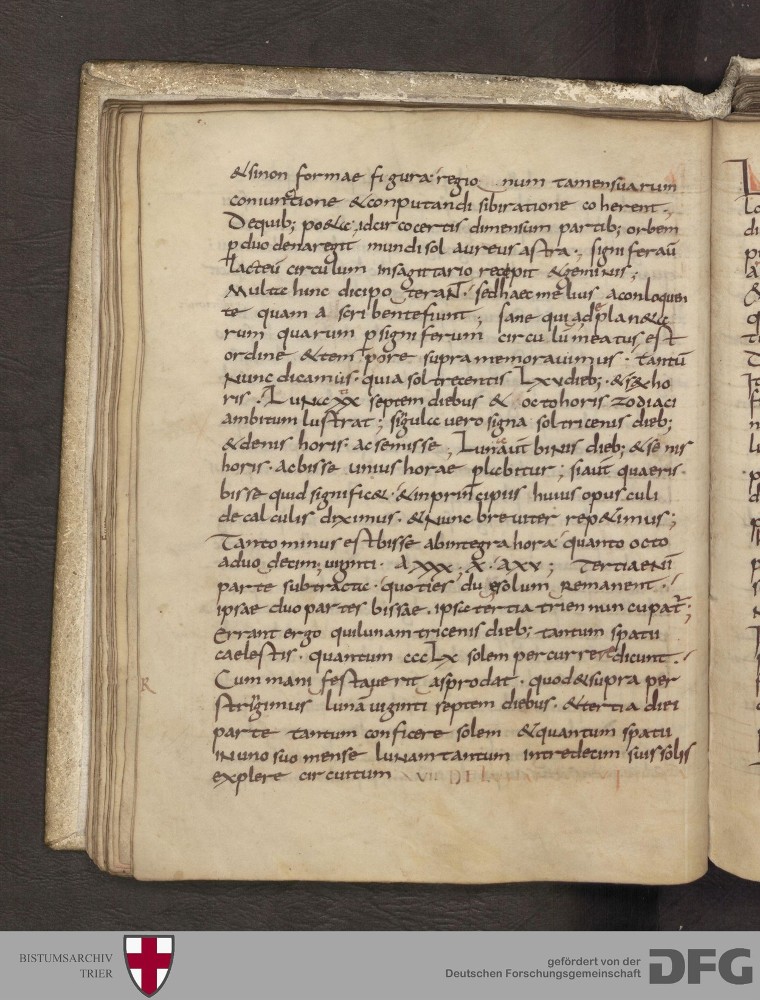 & si non formae figurae regio num tamen suarum
coniunctione & conputandi sibi ratione coherent.
De quib; poeta; idcirco certis dimensum partib; orbem
p duodena regit mundi sol aureus astra. signiferaū
lacteū circulum in sagittario recepit & geminis;
Multa hinc dici poteraN. sed haec melius a conloquen
te quam a scribente fiunt; sane quia de planeta
rum quarum p signiferum circulū meatus est
ordine & tempore supra memoravimus. tantū
Nunc dicamus. quia sol trecentis Lxv dieb; & sex ho
ris. LuNa xx septem diebus & octo horis zodiaci
ambitum lustrat; singula vero signa sol tricenis dieb;
& denis horis. ac semisse; Luna aūt biNis dieb; & seNis
horis. ac bisse unius horae plicbitur; si aūt quaeris.
bisse quid significet. & in principiis huius opusculi
de calculis diximus. & Nunc breviter repetimus;
Tanto minus est bisse ab integra hora quanto octo
a duodecim; viginti. A xxx; x. A xv; Tertia eNī
parte subtracta. quoties duae solum Remanent.
ipsae duo partes bissae. ipsa tertia trien nuncupaṫ;
Errant ergo qui lunam tricenis dieb; tantum spatii
caelestis. quantum ccc Lx solem percurrere dicunt.
R
Cum manifesta verit as prodat. quod & supra per
strinximus lunā viginti septem diebus. & tertia diei
parte tantum conficere solem & quantum spatii
iN uno suo mense lunam tantum in tredecim suis solis
explere circuitum
BISTUMSARCHIV
TRIER
gefördert von der
Deutschen Forschungsgemeinschaft
DFG